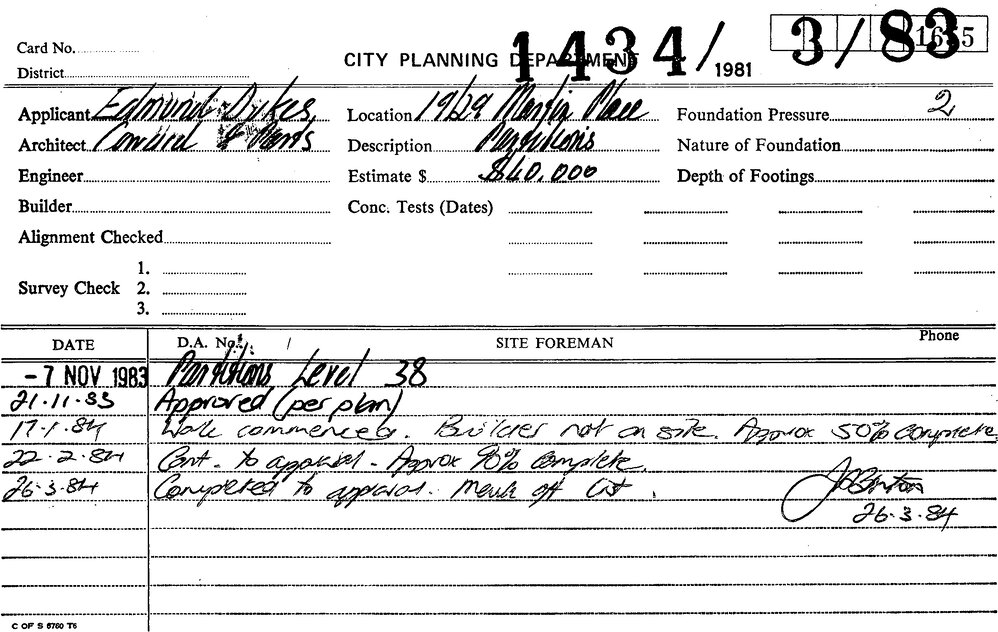 Card No.
District
CITY PLANNING DEPARTMENT
1434/ 1981
3/83
Applicant Edmund Dykes Location 19/29 Martin Place Foundation Pressure 2
Architect Description Partitions Nature of Foundation
Engineer Estimate $ $40.000 Depth of Footings
Builder Conc. Tests (Dates)
Alignment Checked
1.
Survey Check 2.
3.
DATE D.A. No. / SITE FOREMAN Phone
-7 NOV 1983 Partitions Level 38
21.11.83 Approved (per plan)
17.1.84 Work commenced. Builders not on site. Approx 50% complete
22.2.84 Cont. to approval - Approx 90% complete.
26.3.84 Completed to approval. Mark off list.
26.3.84
C OF S 6760 T6